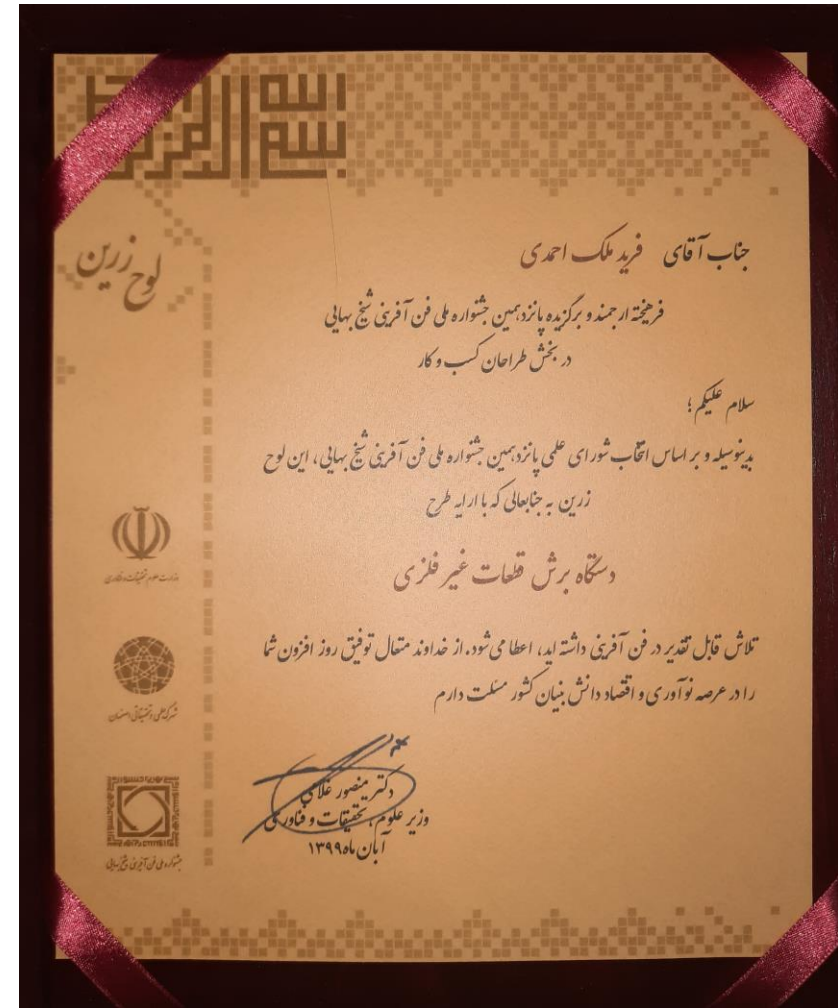 بسم الله الرحمن الرحیم
لوح زرین
جناب آقای فرید ملک احمدی
فرهیخته ارجمند و برگزیده پانزدهمین جشنواره ملی فن آفرینی شیخ بهایی
در بخش طراحان کسب و کار
سلام علیکم؛
بدینوسیله و بر اساس انتخاب شورای علمی پانزدهمین جشنواره ملی فن آفرینی شیخ بهایی، این لوح
زرین به جنابعالی که با ارایه طرح
دستگاه برش قطعات غیر فلزی
تلاش قابل تقدیر در فن آفرینی داشته اید، اعطا می‌شود. از خداوند متعال توفیق روز افزون شما
را در عرصه نوآوری و اقتصاد دانش بنیان کشور مسئلت دارم
دکتر منصور غلامی
وزیر علوم، تحقیقات و فناوری
آبان ماه ۱۳۹۹
وزارت علوم تحقیقات و فناوری
شهرک علمی و تحقیقاتی اصفهان
جشنواره ملی فن آفرینی شیخ بهایی